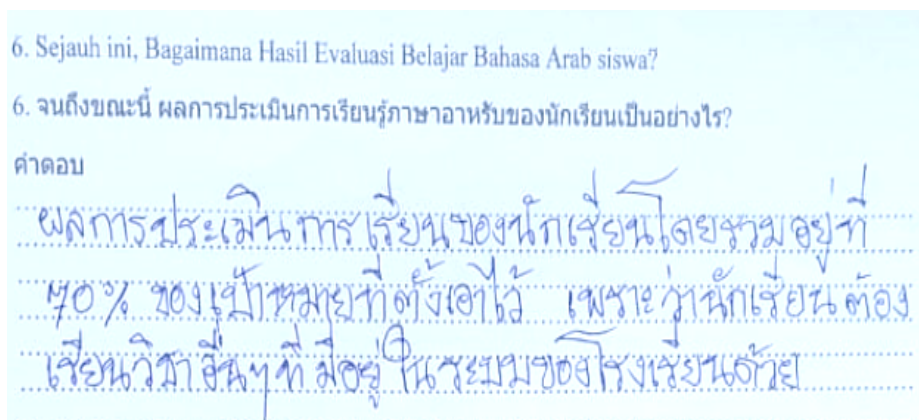 6. Sejauh ini, Bagaimana Hasil Evaluasi Belajar Bahasa Arab siswa?
6. จนถึงขณะนี้ ผลการประเมินการเรียนรู้ภาษาอาหรับของนักเรียนเป็นอย่างไร?
คำตอบ
ผลการประเมินการเรียนของนักเรียนโดยรวมอยู่ที่
70% ของเป้าหมายที่ตั้งเอาไว้ เพราะว่านักเรียนต้อง
เรียนวิชาอื่นๆที่มีอยู่ในระบบของโรงเรียนด้วย